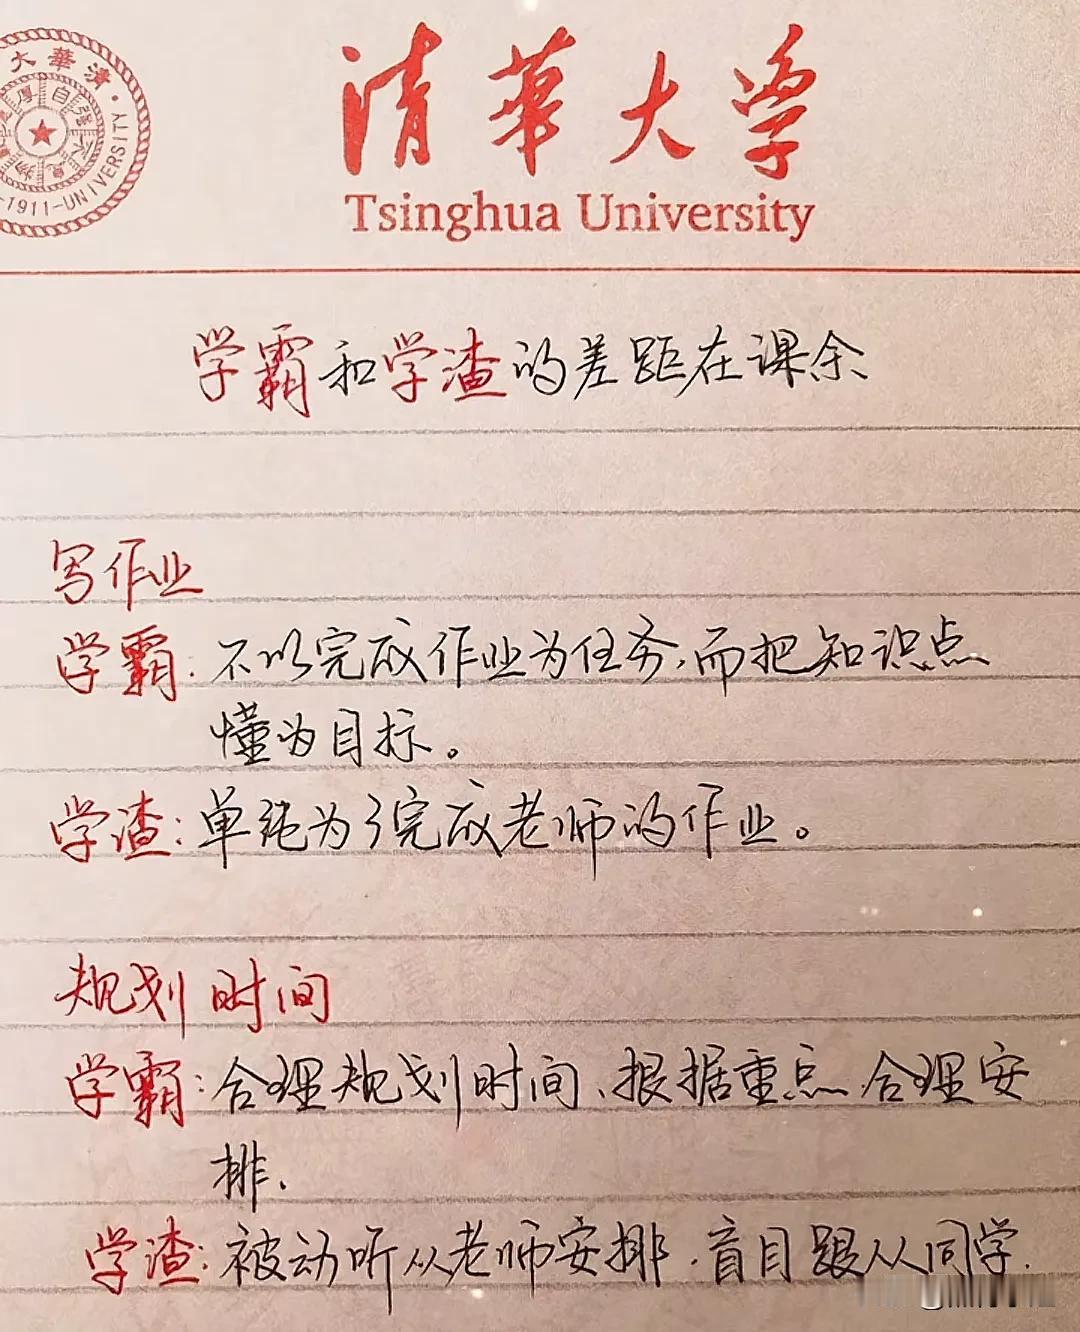 清華大学
Tsinghua University
大華清
自强不息厚
-1911-UNIVERSITY
学霸和学渣的差距在课余
写作业
学霸:不以完成作业为任务,而把知识点
懂为目标。
学渣:单纯为了完成老师的作业。
规划时间
学霸:合理规划时间、根据重点合理安
排.
学渣:被动听从老师安排.盲目跟从同学.